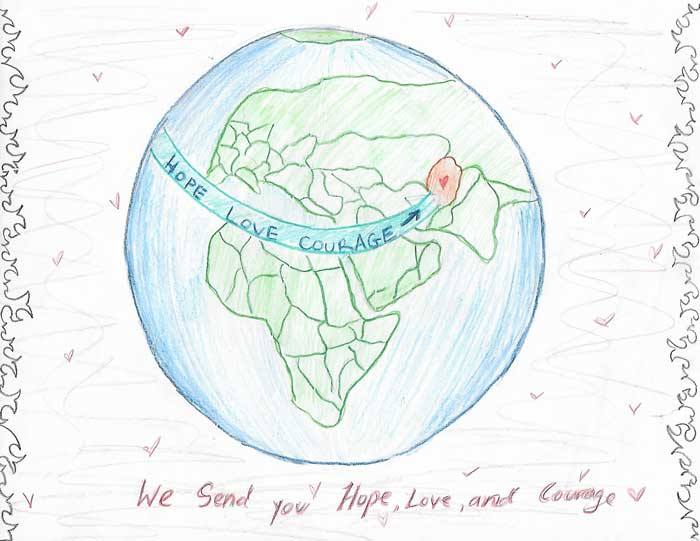 HOPE LOVE COURAGE
We Send you Hope, Love, and Courage